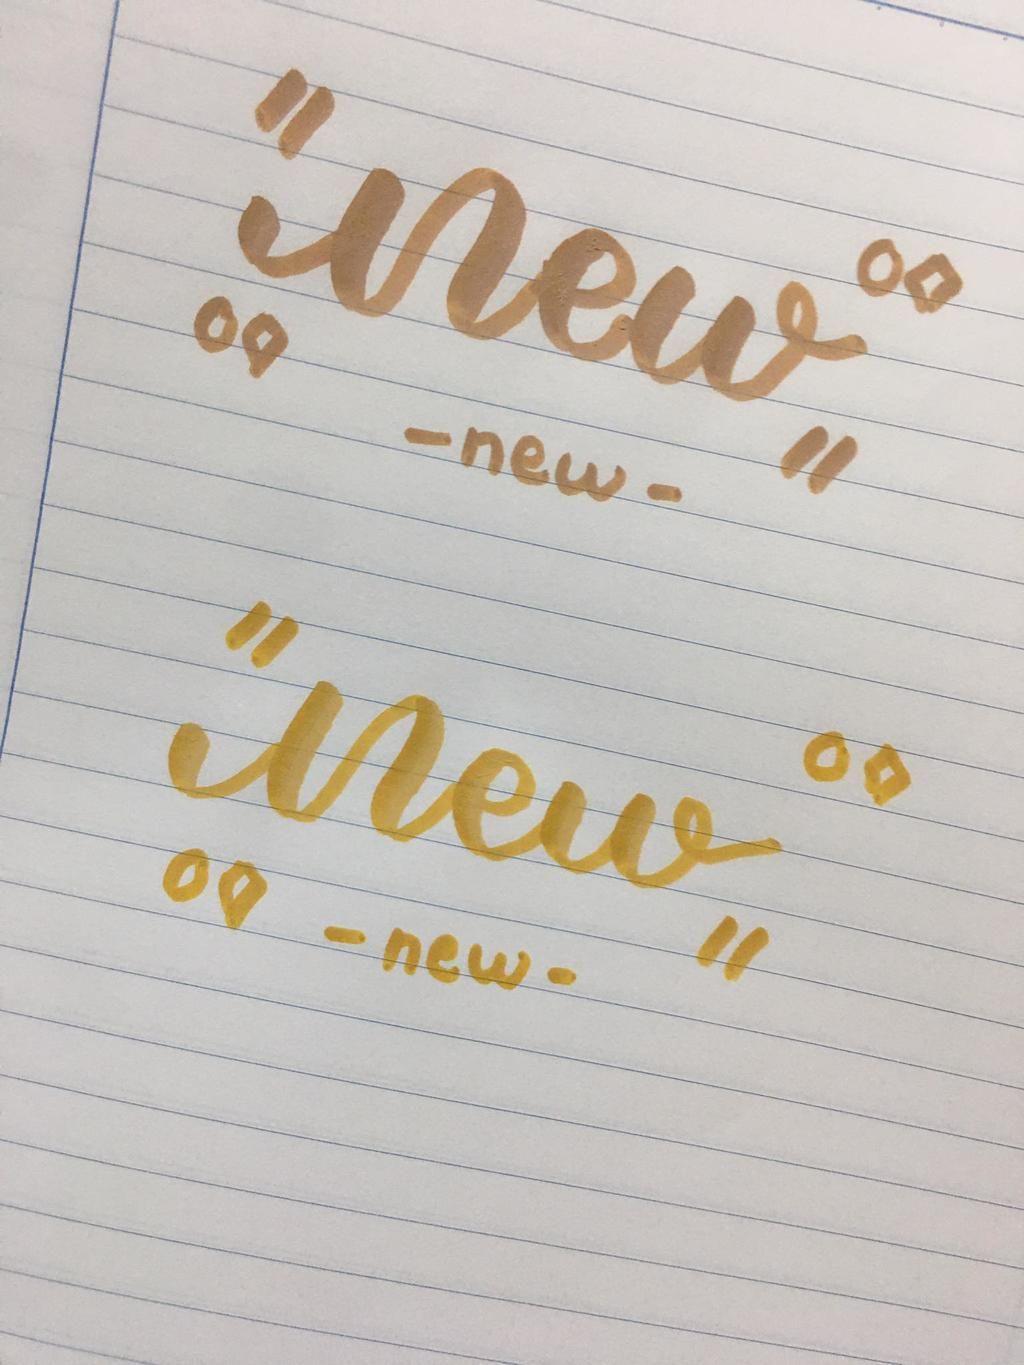 "New"
-new-
"New"
-new-